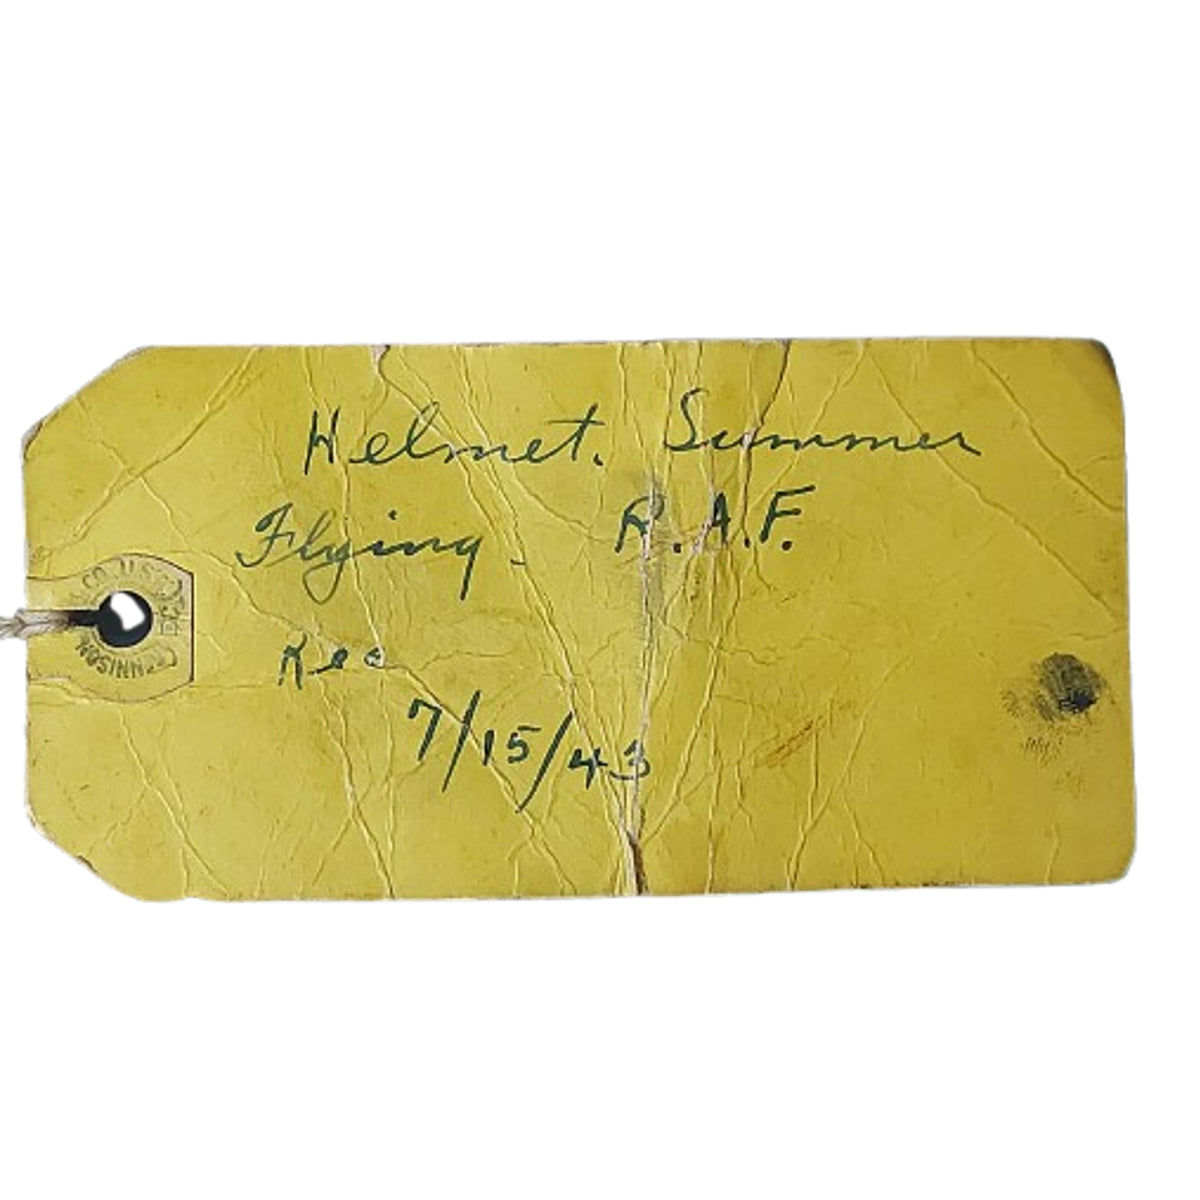 Helmet. Summer
Flying. R.A.F.
Rec
7/15/43
CO. U.S.A.
DENNISON